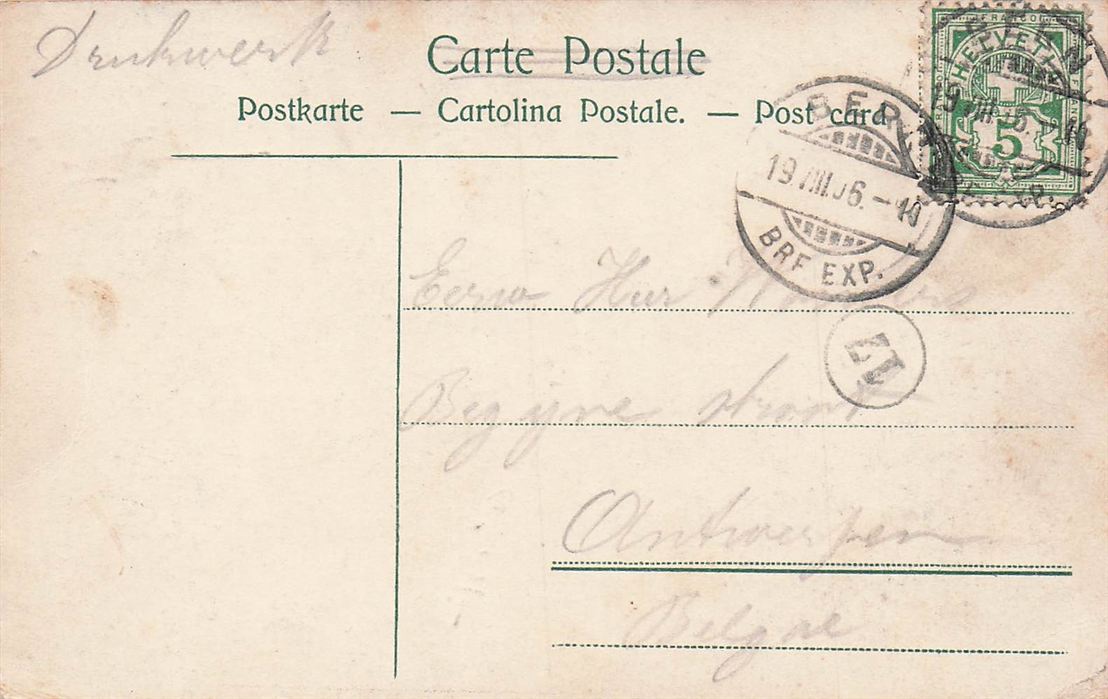 Drukwerk
Carte Postale
Postkarte — Cartolina Postale. — Post card
FRANCO
HELVETIA
5
BERN
19.VIII.06.-10
BRF. EXP.
BERN
19.VIII.06.-10
BRF. EXP.
17
Begijne straat
Antwerpen
Belgie